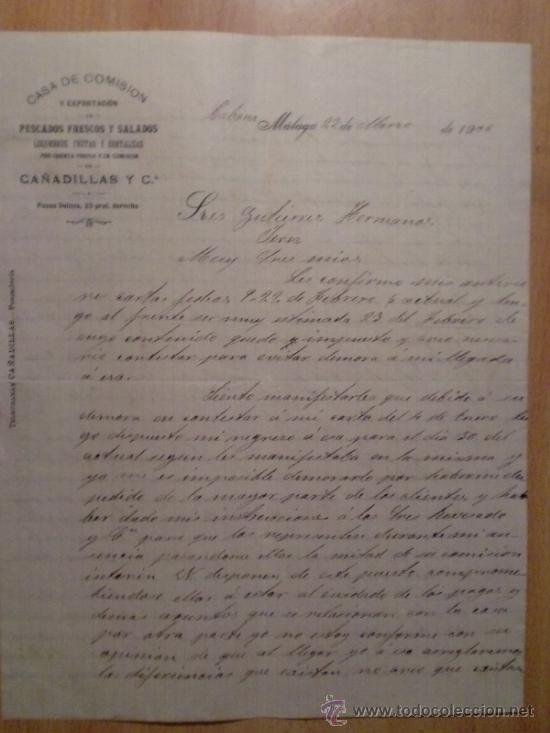 CASA DE COMISION
Y EXPORTACIÓN
DE
PESCADOS FRESCOS Y SALADOS
LEGUMBRES FRUTAS Y HORTALIZAS
POR CUENTA PROPIA Y EN COMISION
DE
CAÑADILLAS Y C.ª
TELEGRAMAS CAÑADILLAS.
Habana Málaga 22 de Marzo de 1900
Sres Gutierrez Hermanos
Muy Sres mios
Les confirmo mis anterio
res cartas fechas 9. 22 de Febrero actual y ten
go al frente su muy estimada 23 del Febrero de
cuyo contenido quedo impuesto y creo necesa
rio contestar para evitar demora a mi llegada
á esa.
Siento manifestarles que debido á su
demora en contestar á mi carta del 4 de Enero ten
go dispuesto mi regreso á esa para el dia 30 del
actual segun les manifestaba en la misma y
ya me es imposible demorarlo por haberme des
pedido de la mayor parte de los clientes y ha
ber dado mis instrucciones á los Sres
y Cª para que los representen durante mi au
sencia pasandome ellos la mitad de su comision
interin VV. disponen de este puesto comprome
tiendose ellos á estar al cuidado de los pagos y
demas asuntos que se relacionan con la casa
por otra parte yo no estoy conforme con su
opinion de que al llegar yo á esa arreglaremos
las diferencias que existan, no creo que existan
www.todocoleccion.net